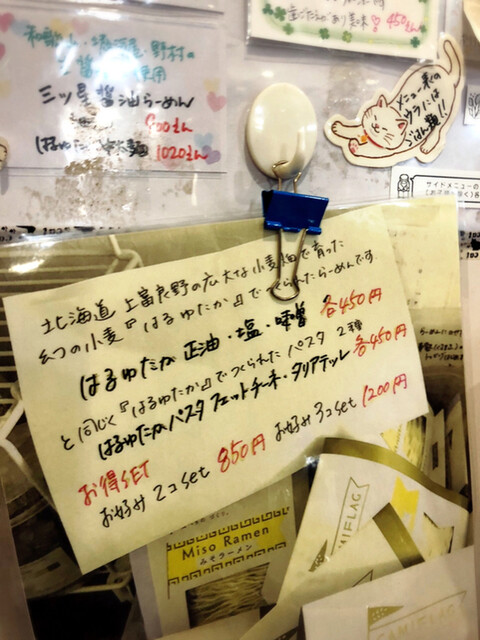 歯ごたえあり美味! 450えん
和歌山・堀河屋・野村の
三ツ星醤油らーめん
900えん
はるゆたか 麺 1020えん
メニュー表の
ウラには
ごはん類!!
サイドメニューの
北海道 上富良野の広大な小麦畑で育った
幻つの小麦『はるゆたか』でつくられたらーめんです。
はるゆたか 正油・塩・味噌 各450円
と同じく『はるゆたか』でつくられたパスタ2種
はるゆたかパスタ フェットチーネ・タリアテッレ 各450円
お得SET
お好み 2コset 850円 お好み 3コset 1200円
Miso Ramen
みそラーメン
CAMIFLAG
CAMIFLAG